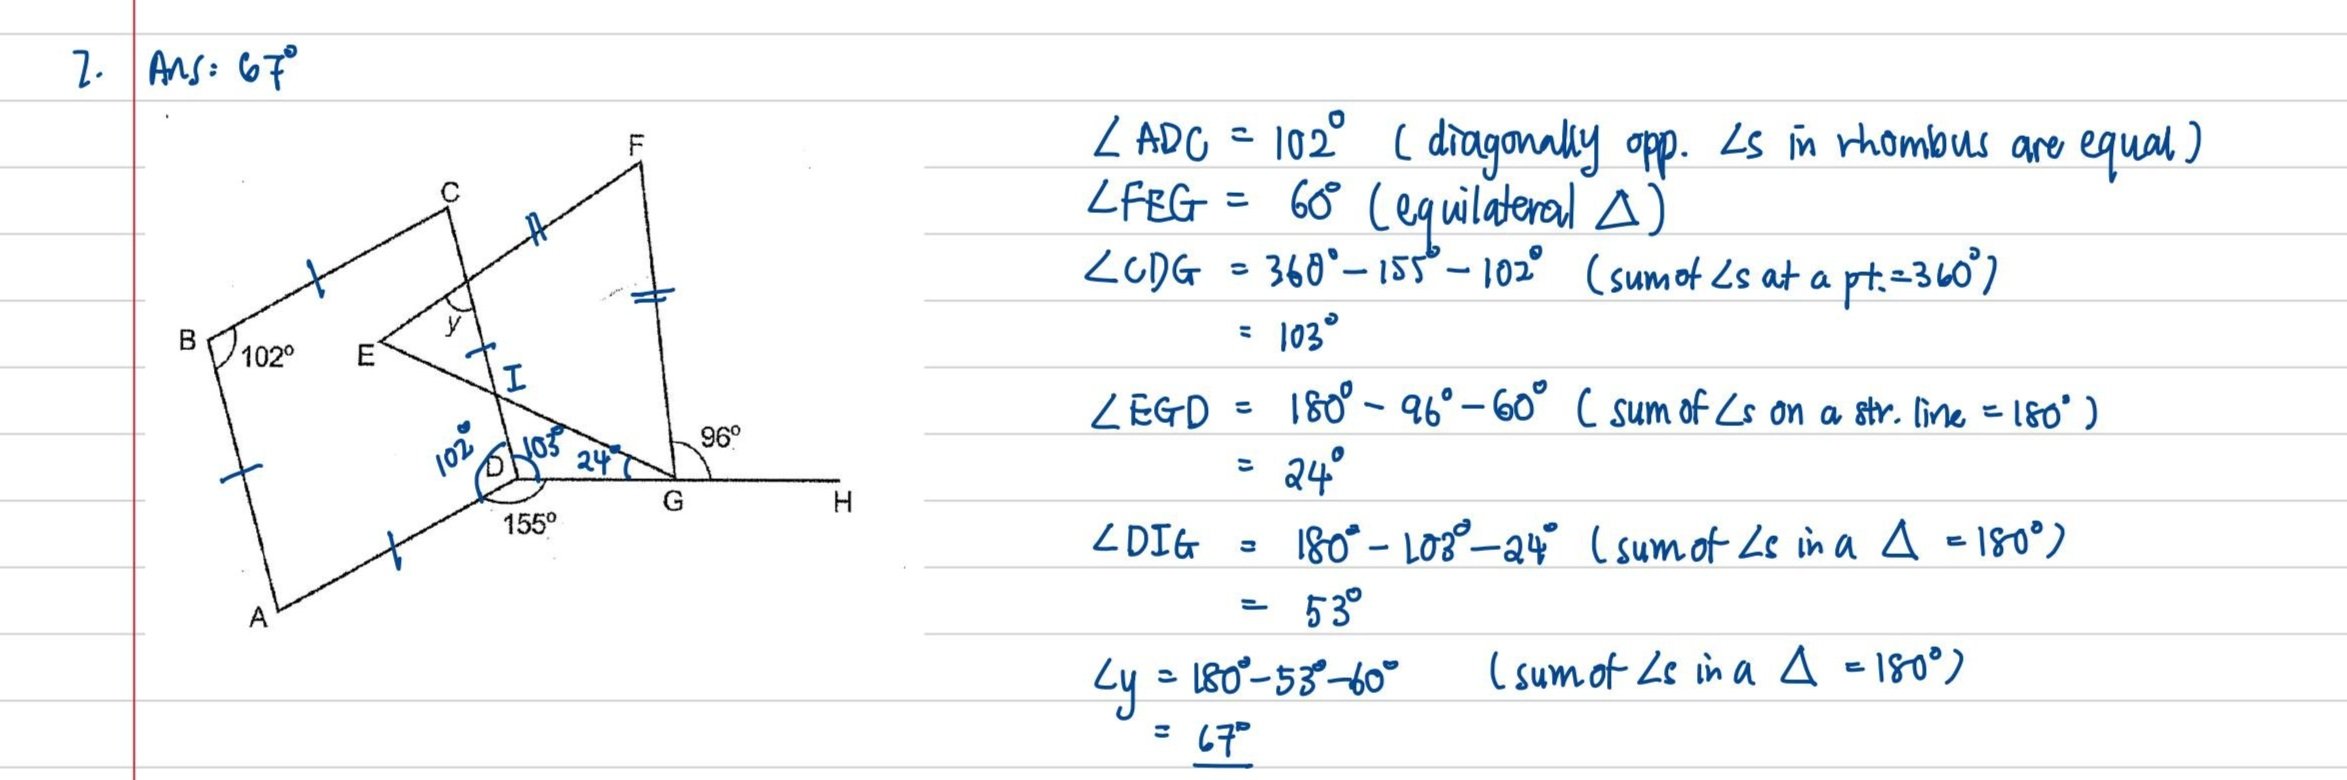 7. Ans: 67°
F
C
B
102°
E
y
I
102°
D
103°
24°
96°
155°
G
H
A
∠ADC = 102° (diagonally opp. ∠s in rhombus are equal)
∠FEG = 60° (equilateral △)
∠CDG = 360° - 155° - 102° (sum of ∠s at a pt. = 360°)
= 103°
∠EGD = 180° - 96° - 60° (sum of ∠s on a str. line = 180°)
= 24°
∠DIG = 180° - 103° - 24° (sum of ∠s in a △ = 180°)
= 53°
∠y = 180° - 53° - 60° (sum of ∠s in a △ = 180°)
= 67°